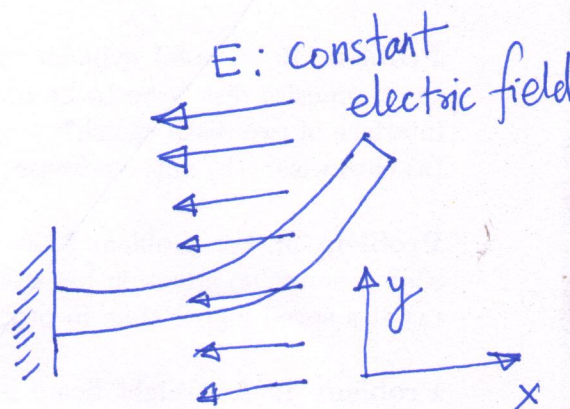 E: constant
electric field
y
x